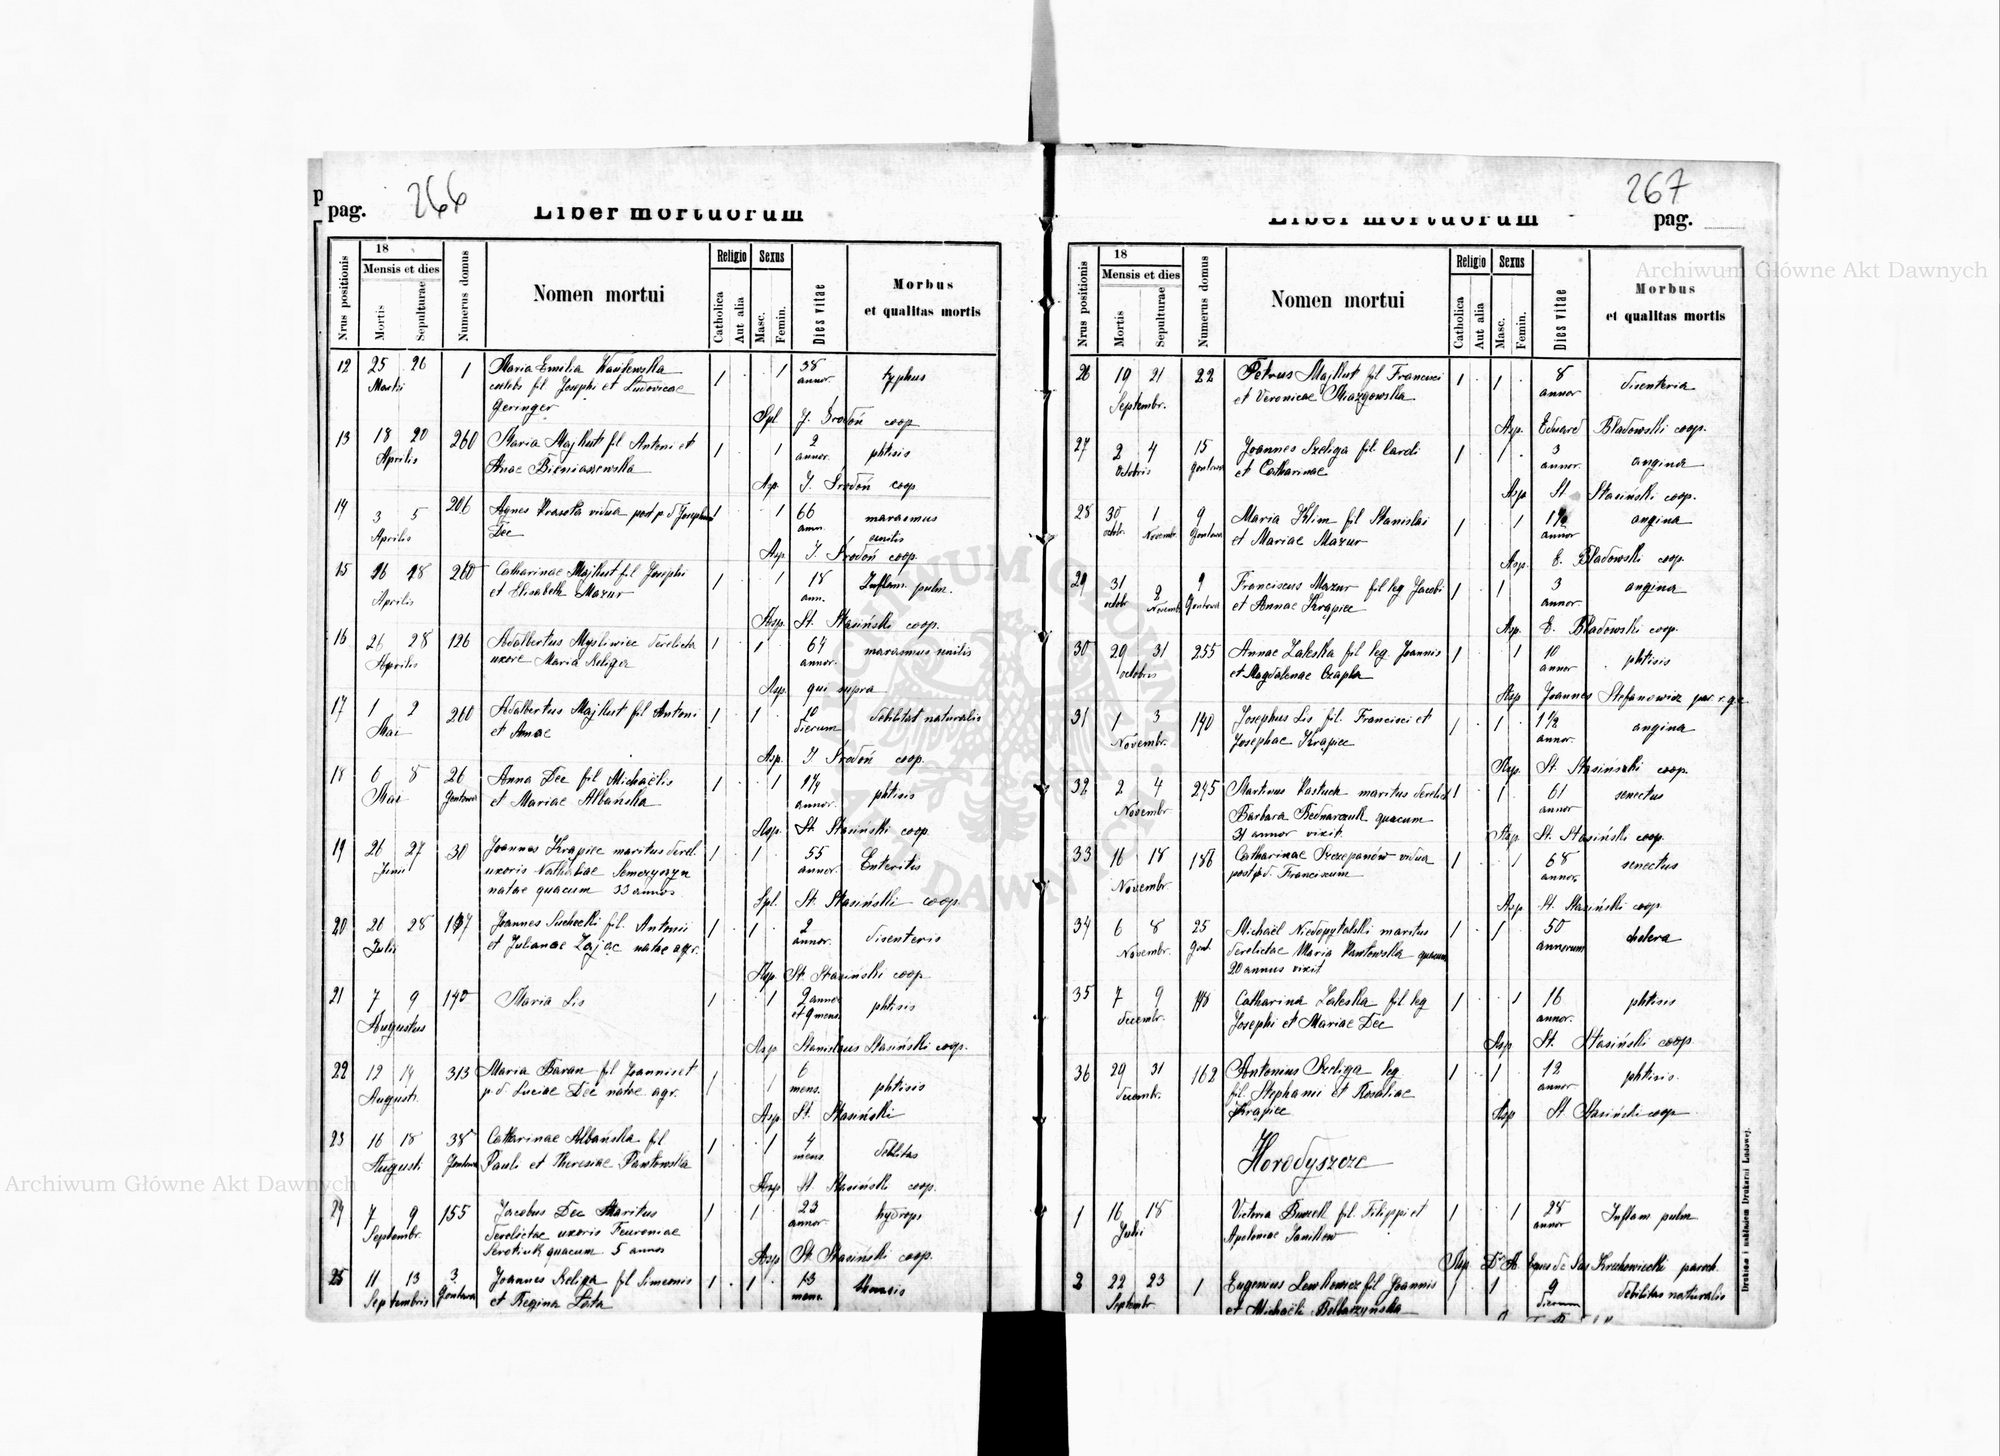 pag. 266
Liber mortuorum
Nrus positionis
18
Mensis et dies
Mortis
Sepulturae
Numerus domus
Nomen mortui
Religio
Catholica
Aut alia
Sexus
Masc.
Femin.
Dies vitae
Morbus
et qualitas mortis
12 25 26 1 Maria Emilia 1 1 38
Martii annor. typhus
coelebs fil Josephi et Ludovicae
Geringer Spl J. Srodoń coop
13 18 20 260 Maria Majkut fil Antoni et 1 1 2
Aprilis Anae Bieniaszewska annor. phtisis
Asp. J. Srodoń coop
14 3 5 206 Agnes Prasoła vidua post p. d Josephum 1 1 66 marasmus
Aprilis Dec ann. senilis
Asp. J. Srodoń coop.
15 26 28 260 Catharinae Majkut fil Josephi 1 1 18 Inflam. pulm.
Aprilis et Elisabeth Mazur ann.
Asp. St. Stasiński coop.
16 26 28 126 Adalbertus Mysliwiec derelicta 1 1 64 marasmus senilis
Aprilis uxore Maria Szeliga annor.
Asp. qui supra
17 1 2 260 Adalbertus Majkut fil Antoni 1 1 10 debilitat naturalis
Mai et Annae dierum
Asp. J Srodoń coop.
18 6 8 26 Anna Dec fil Michaëlis 1 1 1 1/4 phtisis
Mai Gontowa et Mariae Albańska annor.
Asp. St. Stasiński coop.
19 26 27 30 Joannes Krapiec maritus derel. 1 1 55 Enteritis
Junii uxoris annor.
natae quacum 33 annos Spl. St. Stasiński coop.
20 26 28 Joannes Suchecki fil. Antonii 1 1 2 disenteris
Julii et Julianae Zając natae agr. annor.
Asp. St Stasiński coop
21 7 9 140 Maria Lis 1 1 2 annor phtisis
Augustus et 9 mens.
Asp Stanislaus Stasiński coop.
22 12 14 313 Maria Baran fil Joannis et 1 1 6 phtisis
Augusti p. d. Luciae Dec natae agr. mens.
Asp. St. Stasiński
23 16 18 38 Catharinae Albańska fil 1 1 4 debilitas
Augusti Gontowa Pauli et Theresiae Pawłowska mens.
Asp St Stasiński coop.
24 7 9 155 Jacobus Dec Maritus 1 1 23 hydrops
Septembr. derelictae uxoris annor.
quacum 5 annos Asp St Stasiński coop.
25 11 13 3 Joannes Szeliga fil Simeonis 1 1 13
Septembris Gontowa et Regina mens.
267
Liber mortuorum
pag.
Nrus positionis
18
Mensis et dies
Mortis
Sepulturae
Numerus domus
Nomen mortui
Religio
Catholica
Aut alia
Sexus
Masc.
Femin.
Dies vitae
Morbus
et qualitas mortis
26 19 21 22 Petrus Majkut fil Francisci 1 1 8 disenteria
Septembr. et Veronicae annor
Asp. Eduard Bładowski coop.
27 2 4 15 Joannes Szeliga fil. Caroli 1 1 3 angina
Octobris Gontowa et Catharinae annor.
Asp St Stasiński coop.
28 30 1 9 Maria Klim fil Stanislai 1 1 angina
octobr. Novembr. Gontowa et Mariae Mazur annor
Asp. E. Bładowski coop.
29 31 2 9 Franciscus Mazur fil leg Jacobi 1 1 3 angina
octobr. Novembr Gontowa et Annae Krapiec annor.
Asp. E. Bładowski coop.
30 29 31 255 Annae Zaleska fil leg. Joannis 1 1 10 phtisis
octobris et Magdalenae Czapla annor
Asp Joannes Stefanowicz par. r. g. c.
31 1 3 140 Josephus Lis fil. Francisci et 1 1 1 1/2 angina
Novembr. Josephae Krapiec annor.
Asp. St. Stasiński coop.
32 2 4 245 Martinus Pastuch maritus derelict 1 1 61 senectus
Novembr. Barbara Bednarczuk quacum annor
31 annor vixit. Asp. St. Stasiński coop.
33 16 18 186 Catharinae Szczepanów vidua 1 1 68 senectus
Novembr. post p. d. Franciscum annor.
Asp St Stasiński coop.
34 6 8 25 Michaël Niedopytalski maritus 1 1 50 cholera
Novembr. Gont. derelictae Maria Pawłowska quacum annorum
20 annus vixit
35 7 9 148 Catharina Zaleska fil leg 1 1 16 phtisis
decembr. Josephi et Mariae Dec annor.
Asp St. Stasiński coop.
36 29 31 162 Antonius Szeliga leg 1 1 12 phtisis.
decembr. fil. Stephanii et Rosaliae annor
Krapiec Asp St Stasiński coop
Horodyszcze
1 16 18 Victoria fil. Filippi et 1 1 28 Inflam pulm
Julii Apoloniae Janików annor
Asp. Eques de Sas Krechowiecki paroch.
2 22 23 1 Eugenius Lewkowicz fil Joannis 1 1 9 debilitas naturalis
Septembr et Michaëli dierum
Drukiem i nakładem Drukarni Ludowej.
Archiwum Główne Akt Dawnych
Archiwum Główne Akt Dawnych
ARCHIWUM GŁÓWNE AKT DAWNYCH